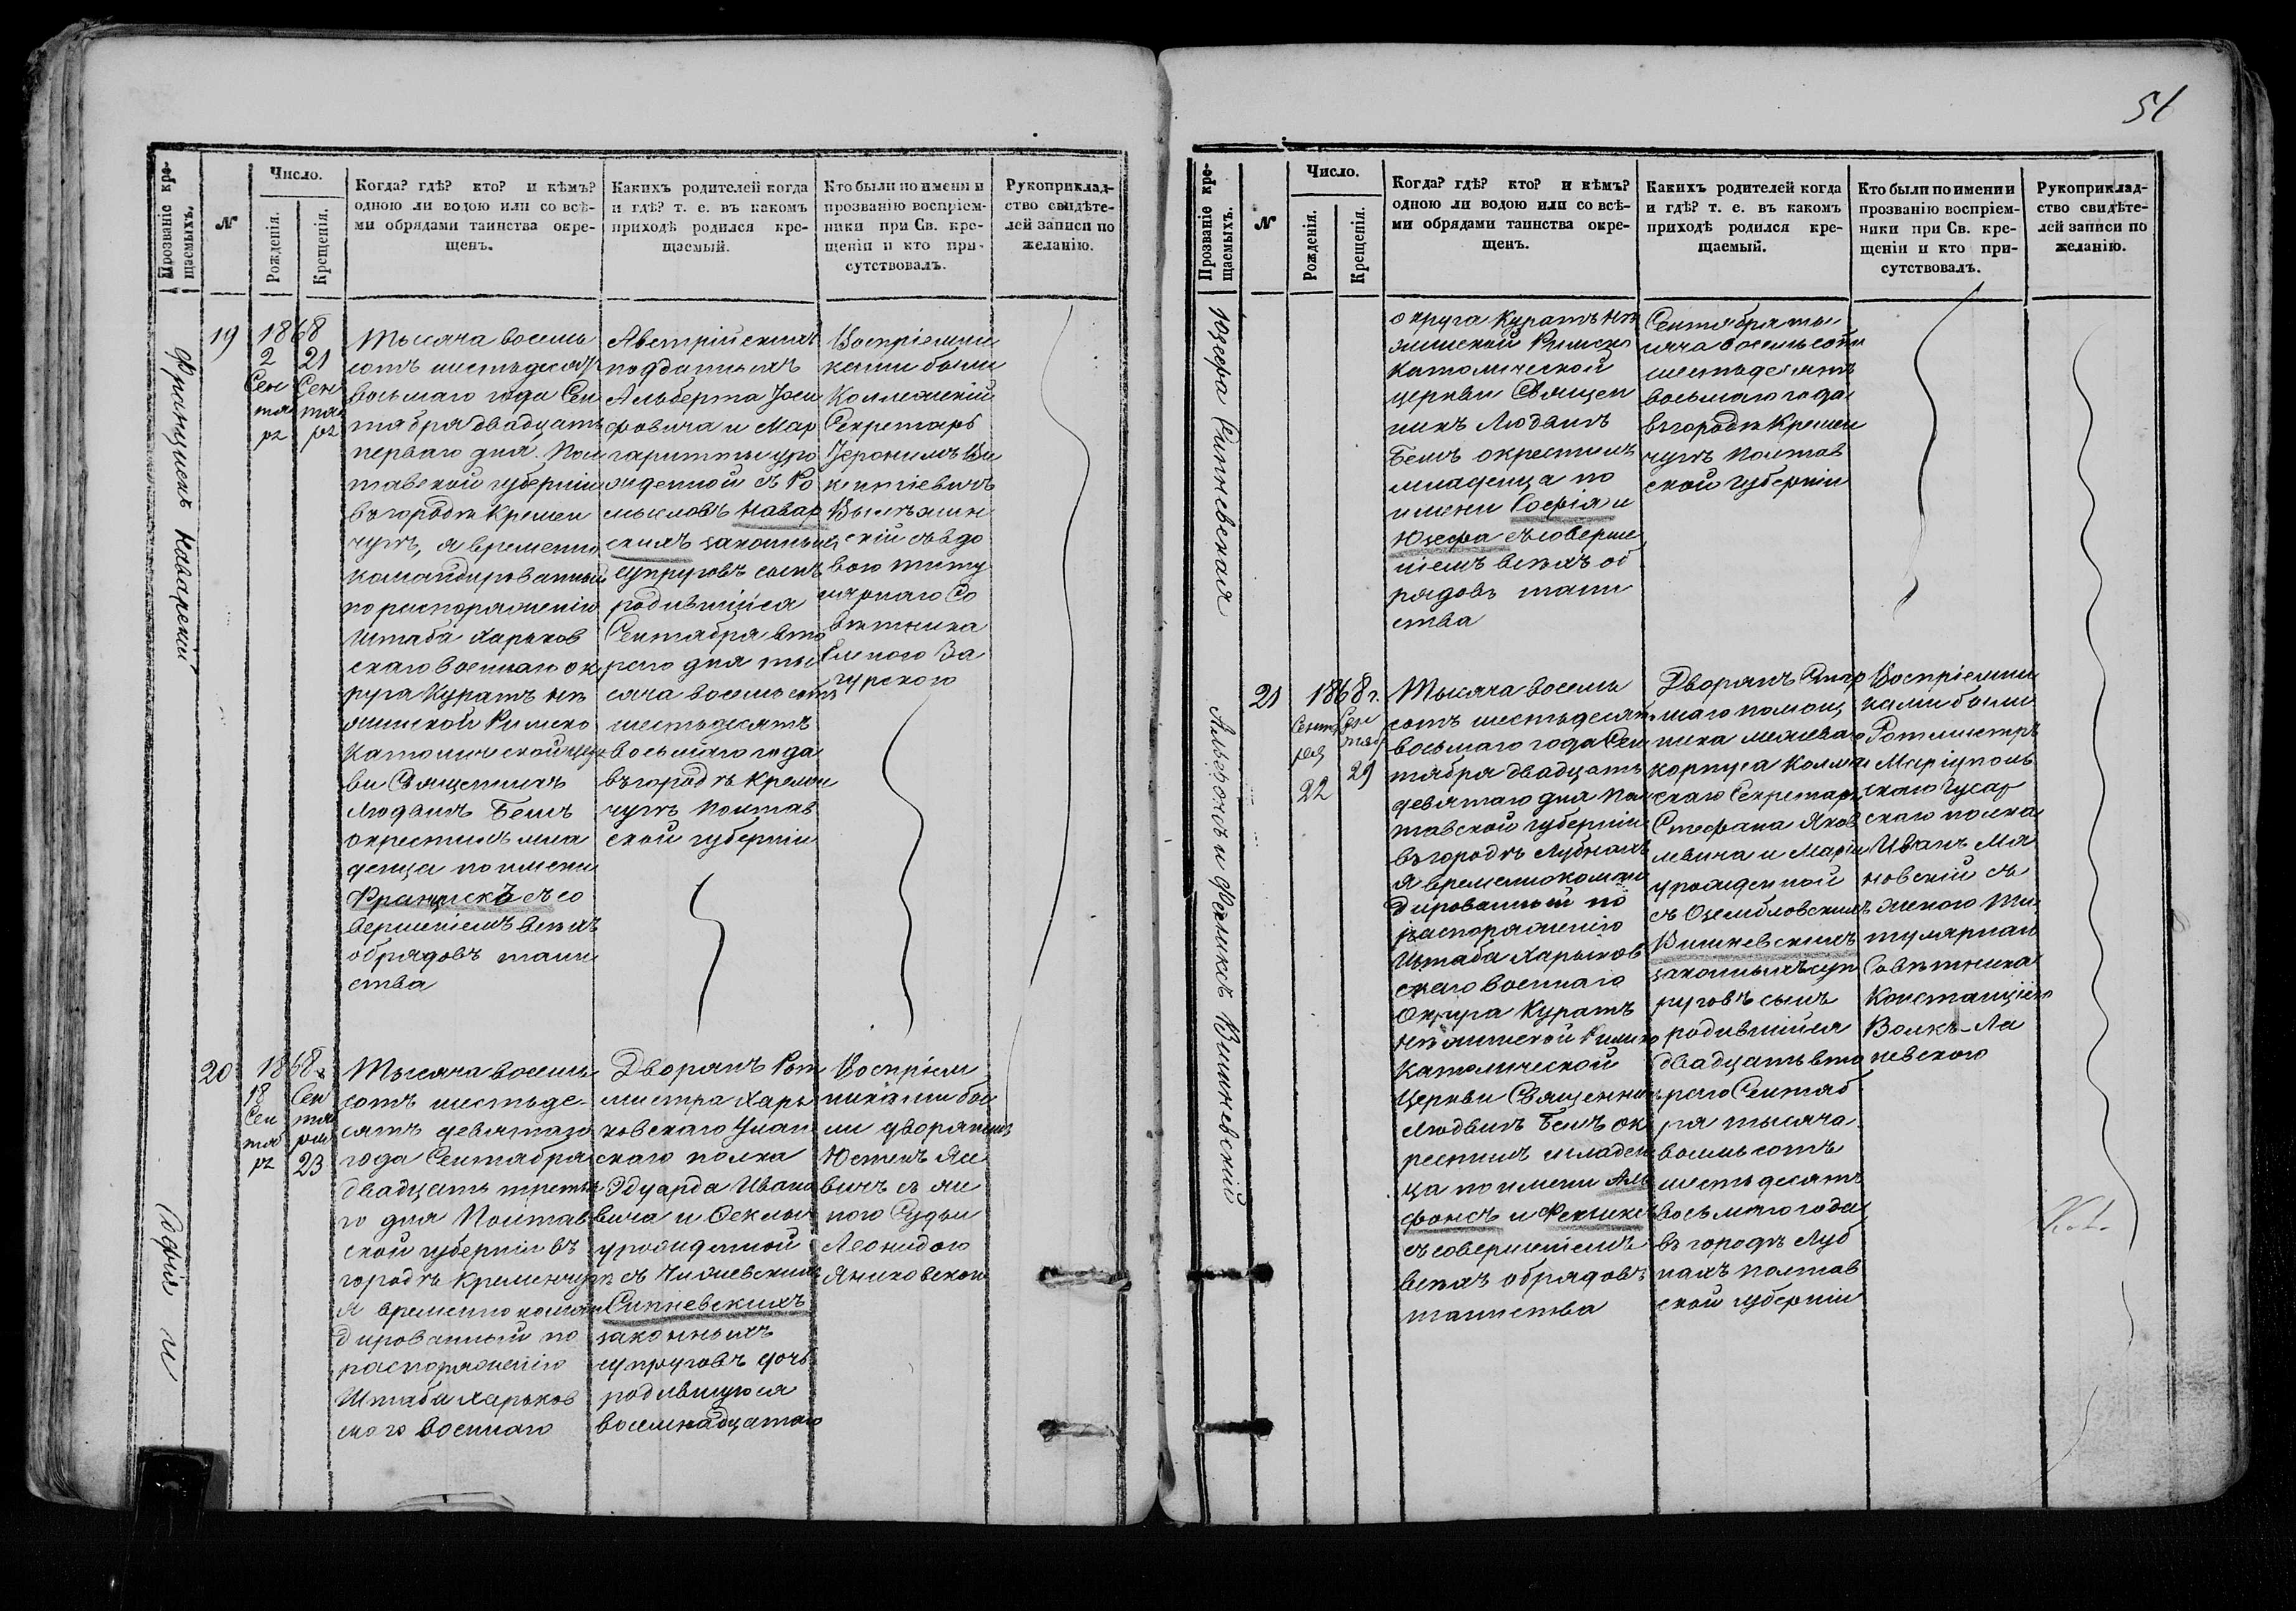 51
Прозваніе кре-
щаемыхъ.
№
Число.
Рожденія.
Крещенія.
Когда? гдѣ? кто? и кѣмъ?
одною ли водою или со всѣ-
ми обрядами таинства окре-
щенъ.
Какихъ родителей когда
и гдѣ? т. е. въ какомъ
приходѣ родился кре-
щаемый.
Кто были по имени и
прозванію воспріем-
ники при Св. кре-
щеніи и кто при-
сутствовалъ.
Рукоприклад-
ство свидѣте-
лей записи по
желанію.
Францискъ Наварскій
19
1868
2
Сен
тя
рѣ
21
Сен
тя
рѣ
Тысяча восемь
сотъ шестьдесятъ
восьмаго года Сен
тября двадцать
перваго дня. Пол
тавской губерніи
въ городѣ Кремен
чугѣ, я временно
командированный
по распоряженію
Штаба Харьков
скаго военнаго ок
руга Куратъ Нѣ
жинской Римско
Католической цер
кви Священникъ
Людвигъ
окрестилъ мла
денца по имени
Францискъ съ со
вершеніемъ всѣхъ
обрядовъ таин
ства
Австрійскихъ
подданныхъ
Альберта
фовича и Мар
гаритты уро
жденной съ
Навар
скихъ законныхъ
супруговъ сынъ
родившійся
Сентября вто
раго дня ты
сяча восемь сотъ
шестьдесятъ
восьмаго года
въ городѣ Кремен
чугѣ Полтав
ской губерніи
Воспріемни
ками были
Коллежскій
Секретарь
Іеронимъ
скій съ вдо
вою Титу
лярнаго Со
вѣтника
Еленою За
гурскою
Софія и
20
1868
18
Сен
тя
рѣ
Сен
тя
рѣ
23
Тысяча восемь
сотъ шестьде-
сятъ девятаго
года Сентября
двадцать третья
го дня Полтав
ской губерніи въ
городѣ Кременчугѣ
я временно коман
дированный по
распоряженію
Штаба Харьков
скаго военнаго
Дворянъ Рот
мистра Харь
ковскаго Улан
скаго полка
Эдуарда Ивано
вича и Феклы
урожденной
съ Чижевскихъ
Сипневскихъ
законныхъ
супруговъ дочь
родившуюся
восемнадцатаго
Воспріем
никами бы
ли дворянинъ
Юстинъ
вичъ съ же
ною Судьи
Леонидою
Яниховскою
Прозваніе кре-
щаемыхъ.
№
Число.
Рожденія.
Крещенія.
Когда? гдѣ? кто? и кѣмъ?
одною ли водою или со всѣ-
ми обрядами таинства окре-
щенъ.
Какихъ родителей когда
и гдѣ? т. е. въ какомъ
приходѣ родился кре-
щаемый.
Кто были по имени и
прозванію воспріем-
ники при Св. кре-
щеніи и кто при-
сутствовалъ.
Рукоприклад-
ство свидѣте-
лей записи по
желанію.
Юзефа Сипневская
округа Куратъ Нѣ
жинской Римско
Католической
церкви Священ
никъ Людвигъ
окрестилъ
младенца по
имени Софія и
Юзефа съ соверше
ніемъ всѣхъ об
рядовъ таин
ства
Сентября ты
сяча восемь сотъ
шестьдесятъ
восьмаго года
въ городѣ Кремен
чугѣ Полтав
ской губерніи
Альфонсъ и Феликсъ Вишневскій
21
1868 г.
Сентя
бря
22
Сен
тяб
29
Тысяча восемь
сотъ шестьдесятъ
восьмаго года Сен
тября двадцать
девятаго дня Пол
тавской губерніи
въ городѣ Лубнахъ
я временно коман
дированный по
распоряженію
Штаба Харьков
скаго военнаго
Округа Куратъ
Нѣжинской Римско
Католической
Церкви Священникъ
Людвигъ ок
рестилъ младен
ца по имени Аль
фонсъ и Феликсъ
съ совершеніемъ
всѣхъ обрядовъ
таинства
Дворянъ Стар
шаго помощ
ника межева
корпуса Колле
скаго Секретаря
Стефана Яков
левича и Маріи
урожденной
съ
Вишневскихъ
законныхъ суп
руговъ сынъ
родившійся
двадцать вто
раго Сентяб
ря тысяча
восемь сотъ
шестьдесятъ
восьмаго года
въ городѣ Луб
нахъ Полтав
ской губерніи
Воспріемни
ками были
Ротмистръ
Маріуполь
скаго Гусар
скаго полка
Иванъ Ма
новскій съ
женою Ти
тулярнаго
Совѣтника
Констанціею
Волкъ-Ла
невскою